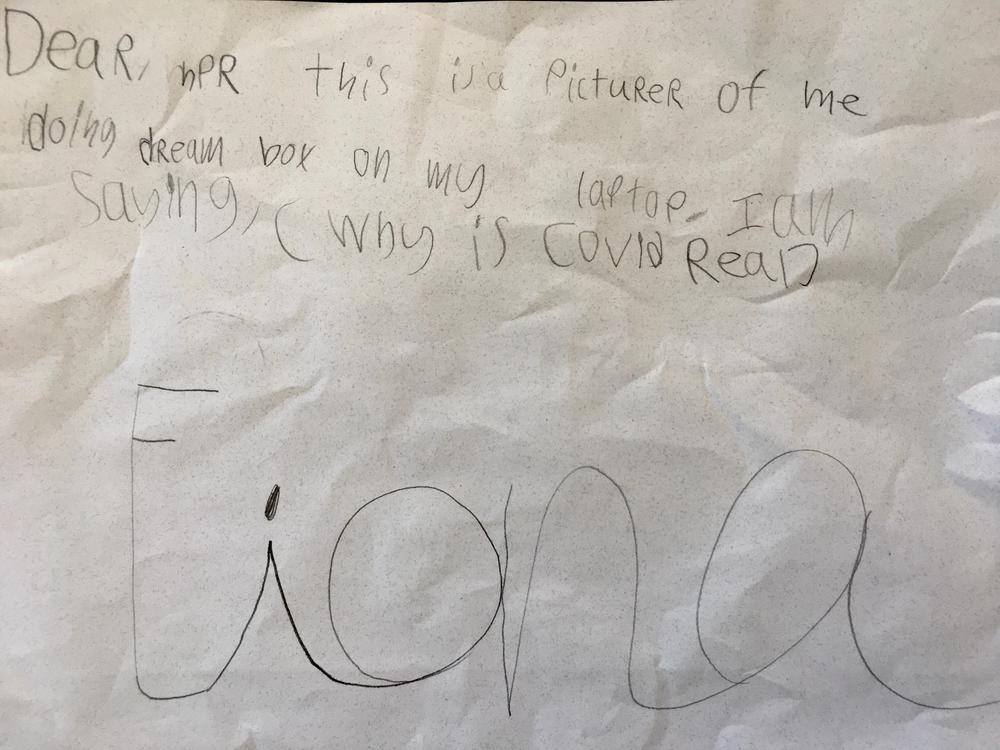 DeaR, nPR this is a PictuReR of me
doing dream box on my laptop. I am
Saying, ( Why is Covid Real)
Fiona